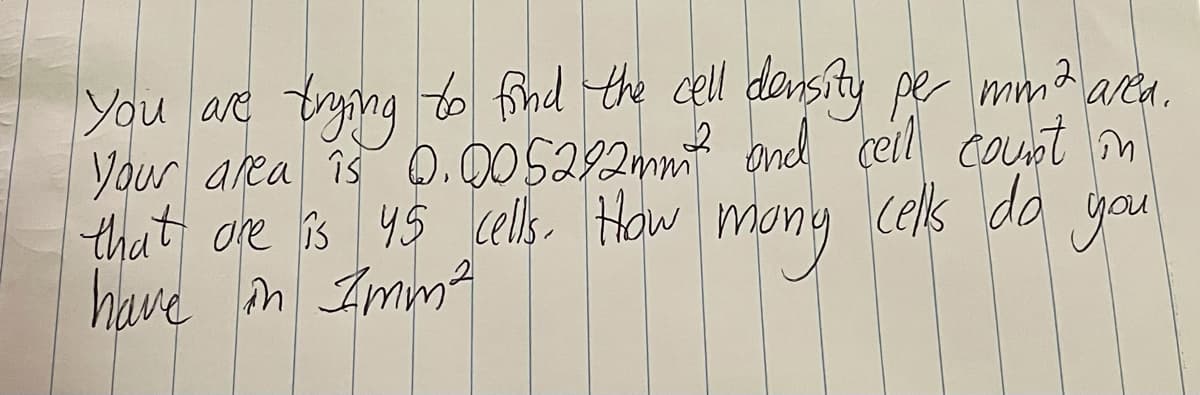 You are trying to find the cell density per mm² area.
Your area is 0.005292mm² and cell count in
that are is 45 cells. How many cells do you
have in 1mm²